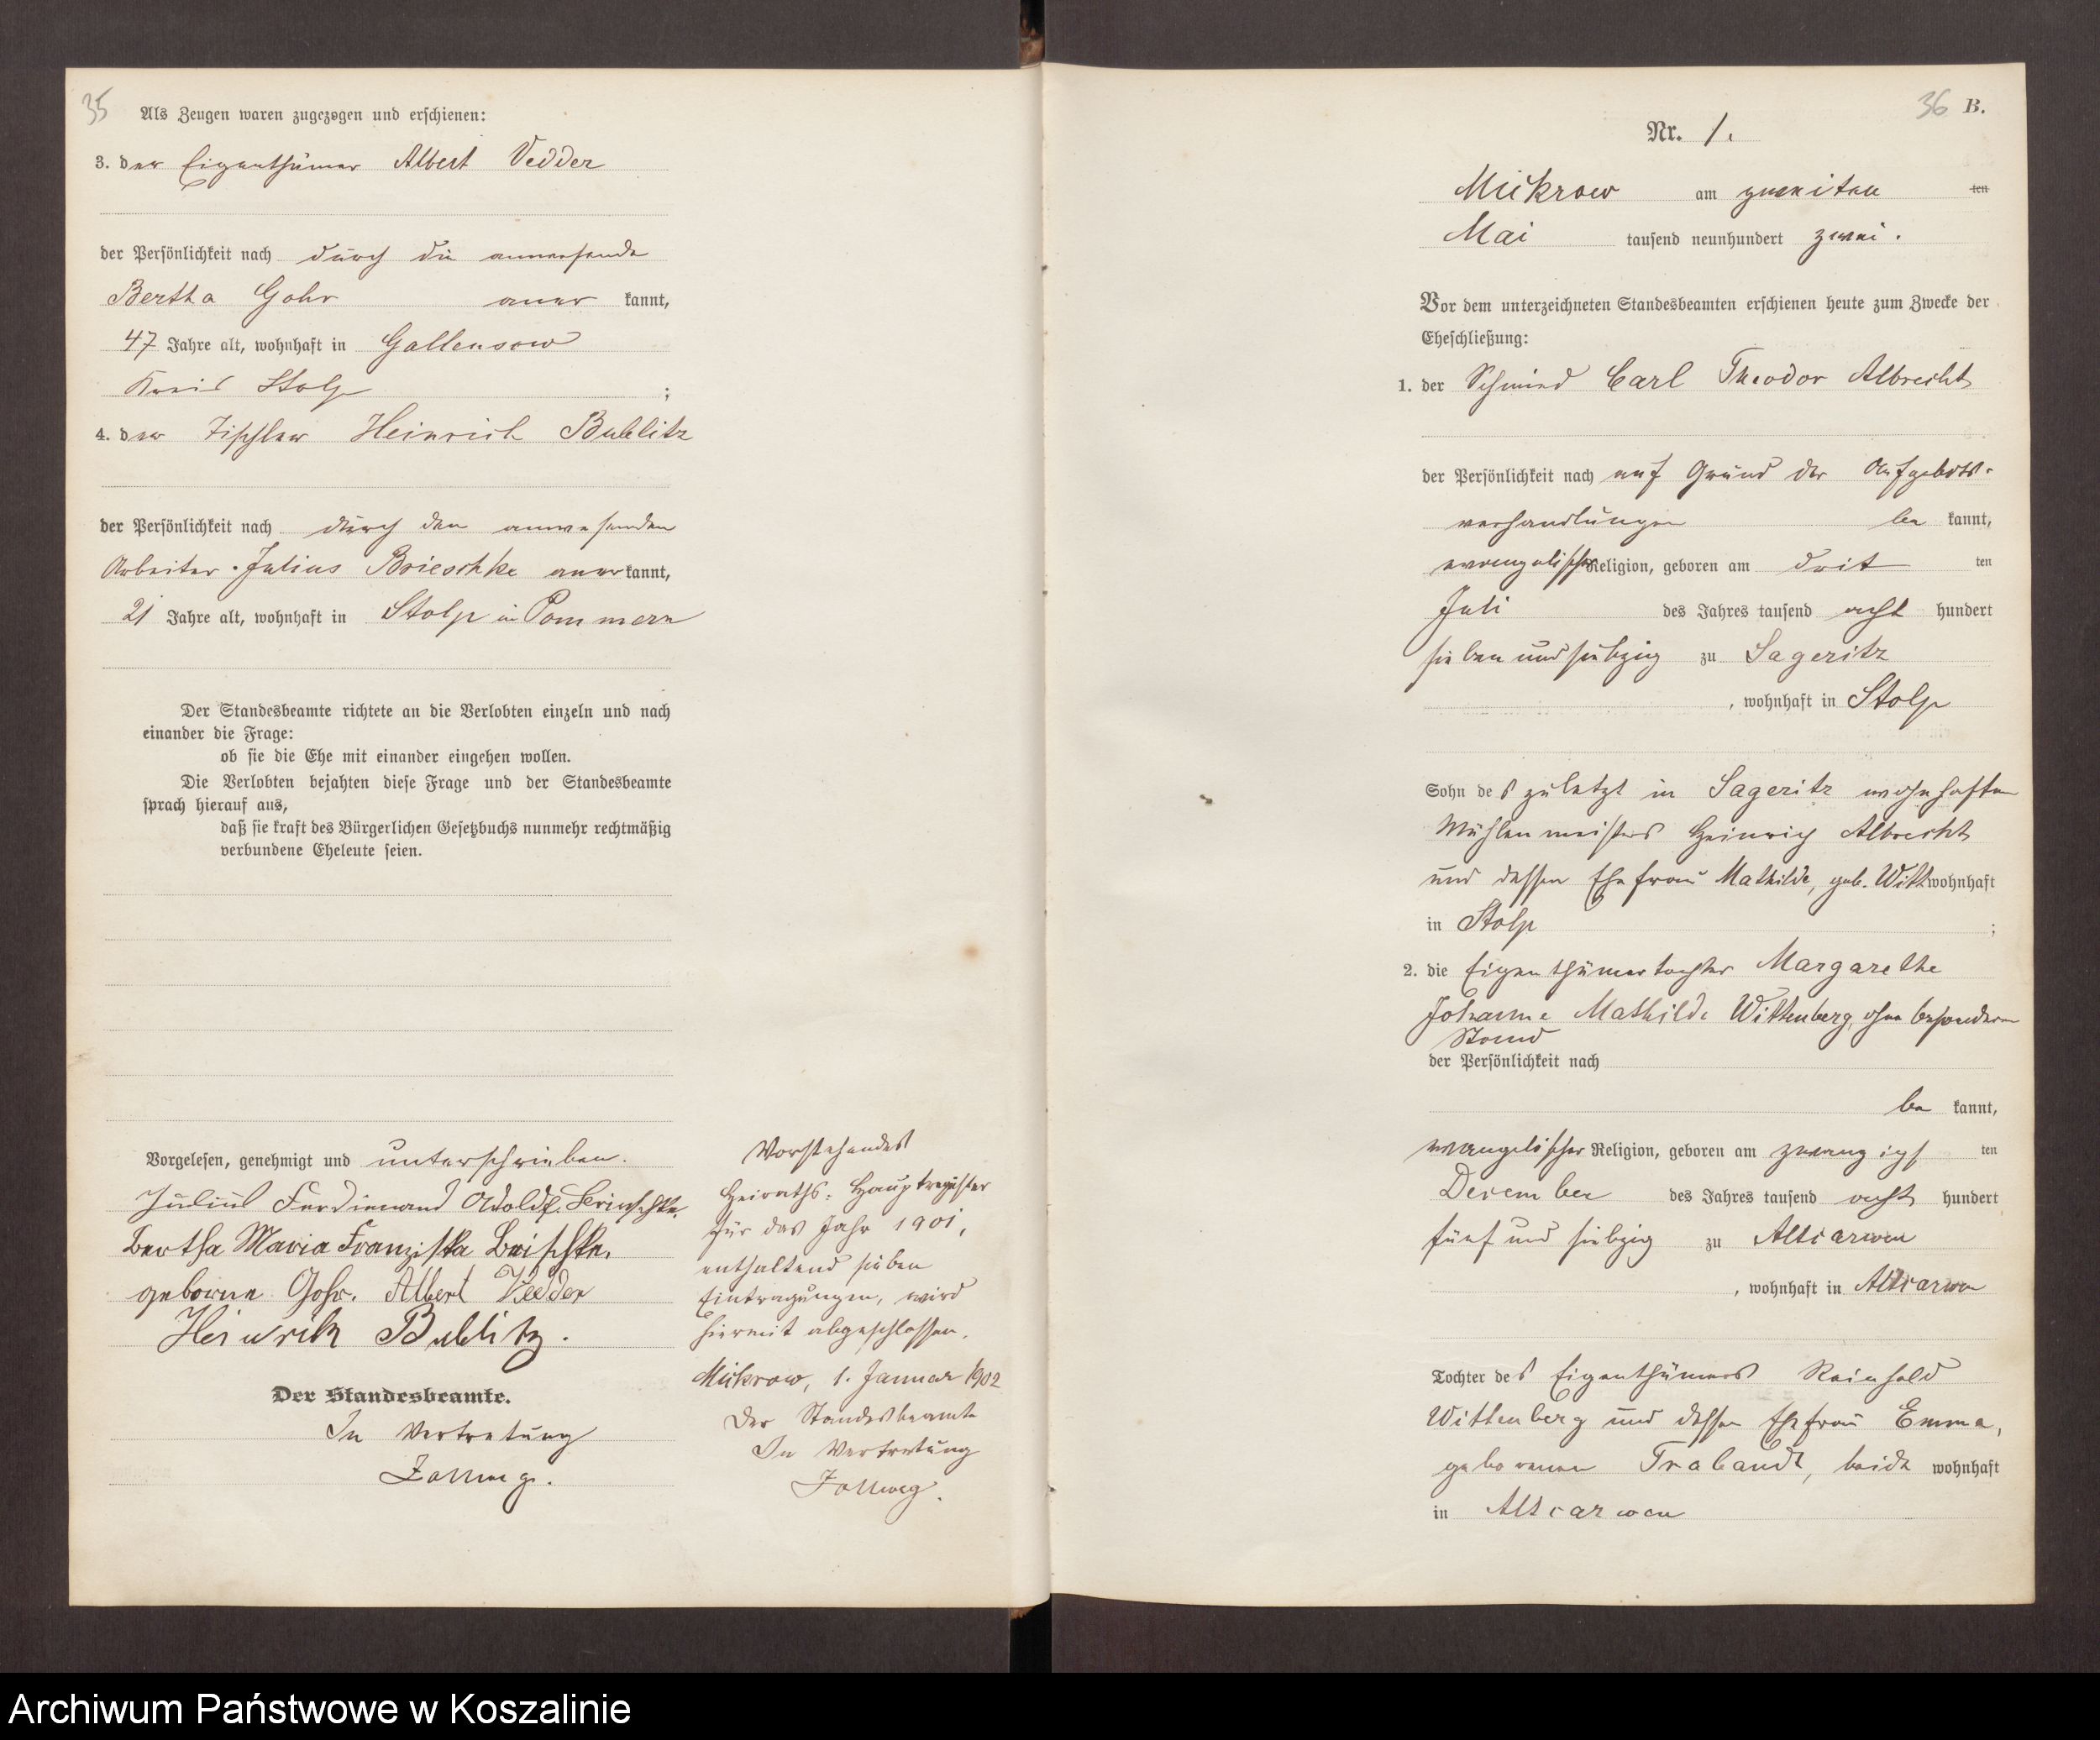 35
Als Zeugen waren zugezogen und erschienen:
3. der Eigenthümer Albert Vedder
der Persönlichkeit nach durch die anwesende
Bertha Gohr aner kannt,
47 Jahre alt, wohnhaft in Gallensow
Kreis Stolp ;
4. der Tischler Heinrich Bublitz
der Persönlichkeit nach durch den anwesenden
Arbeiter Julius Brieschke aner kannt,
21 Jahre alt, wohnhaft in Stolp in Pommern
Der Standesbeamte richtete an die Verlobten einzeln und nach
einander die Frage:
ob sie die Ehe mit einander eingehen wollen.
Die Verlobten bejahten diese Frage und der Standesbeamte
sprach hierauf aus,
daß sie kraft des Bürgerlichen Gesetzbuchs nunmehr rechtmäßig
verbundene Eheleute seien.
Vorgelesen, genehmigt und unterschrieben.
Julius Ferdinand Adolf Brieschke.
Bertha Maria Franziska Brischke,
geborne Gohr. Albert Vedder
Heinrich Bublitz.
Der Standesbeamte.
In Vertretung
Zollweg.
Vorstehendes
Heiraths-Hauptregister
für das Jahr 1901,
enthaltend sieben
Eintragungen, wird
hiermit abgeschlossen.
Mickrow, 1. Januar 1902
Der Standesbeamte
In Vertretung
Zollweg.
36 B.
Nr. 1.
Mickrow am zweiten ten
Mai tausend neunhundert zwei.
Vor dem unterzeichneten Standesbeamten erschienen heute zum Zwecke der
Eheschließung:
1. der Schmied Carl Theodor Albrecht
der Persönlichkeit nach auf Grund der Aufgebots-
verhandlungen be kannt,
evangelischer Religion, geboren am drit ten
Juli des Jahres tausend acht hundert
sieben und siebzig zu Sageritz
, wohnhaft in Stolp
Sohn des zuletzt in Sageritz wohnhaften
Mühlenmeisters Heinrich Albrecht
und dessen Ehefrau Mathilde, geb. Witt wohnhaft
in Stolp ;
2. die Eigenthümertochter Margarethe
Johanne Mathilde Wittenberg, ohne besonderen
Stand
der Persönlichkeit nach
be kannt,
evangelischer Religion, geboren am zwanzigs ten
Dezember des Jahres tausend acht hundert
fünf und siebzig zu Altcarwen
, wohnhaft in Altcarwen
Tochter des Eigenthümers Reinhold
Wittenberg und dessen Ehefrau Emma,
geborenen Trabandt, beide wohnhaft
in Altcarwen
Archiwum Państwowe w Koszalinie